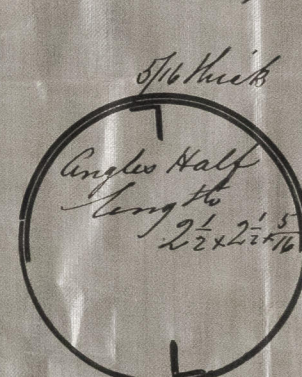 5/16 thick
Angles Half
lengths
2½ x 2½ x 5/16